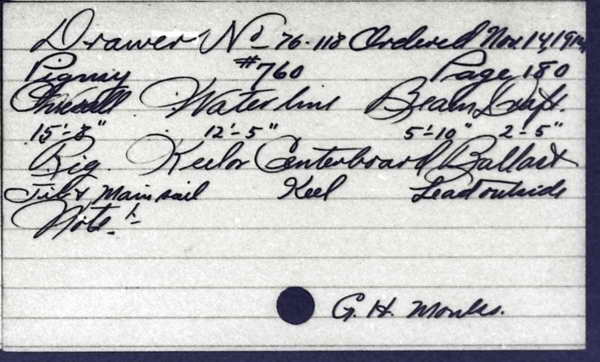 Drawer No 76-118 Ordered Nov. 14, 191
Pigmy #760 Page 180
Overall Waterline Beam Draft.
15'-8" 12'-5" 5'-10" 2'-5"
Rig. Keel or Centerboard Ballast
Jib & Mainsail Keel Lead outside
Note:-
G. H. Monks.